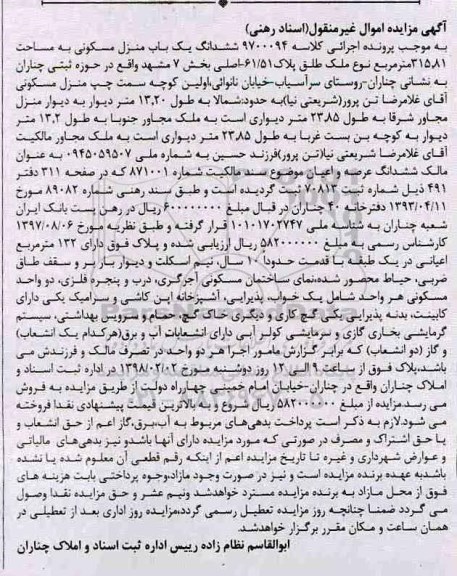 آگهی مزایده اموال غیرمنقول(اسناد رهنی)
به موجب پرونده اجرائی کلاسه ۹۷۰۰۰۹۴ ششدانگ یک باب منزل مسکونی به مساحت
۳۱۵.۸۱مترمربع نوع ملک طلق پلاک۶۱/۵۱-اصلی بخش ۷ مشهد واقع در حوزه ثبتی چناران
به نشانی چناران-روستای سرآسیاب-خیابان نانوائی،اولین کوچه سمت چپ منزل مسکونی
آقای غلامرضا تن پرور(شریعتی نیا)به حدود:شمالا به طول ۱۳.۲۰ متر دیوار به دیوار منزل
مجاور شرقا به طول ۲۳.۸۵ متر دیواری است به ملک مجاور جنوبا به طول ۱۳.۲ متر
دیوار به کوچه بن بست غربا به طول ۲۳.۸۵ متر دیواری است به ملک مجاور مالکیت
آقای غلامرضا شریعتی نیا(تن پرور)فرزند حسین به شماره ملی ۰۹۴۵۰۵۹۵۰۷ به عنوان
مالک ششدانگ عرصه و اعیان موضوع سند مالکیت شماره ۸۷۱۰۰۱ که در صفحه ۳۱۱ دفتر
۴۹۱ ذیل شماره ثبت ۷۰۸۱۳ ثبت گردیده است و طبق سند رهنی شماره ۸۹۰۸۲ مورخ
۱۳۹۳/۰۴/۱۱ دفترخانه ۴۰ چناران در قبال مبلغ ۶۰۰۰۰۰۰۰۰ ریال در رهن پست بانک ایران
شعبه چناران به شناسه ملی ۱۰۱۰۱۷۰۲۷۴۷ قرار گرفته و طبق نظریه مورخ ۱۳۹۷/۰۸/۰۶
کارشناس رسمی به مبلغ ۵۸۲۰۰۰۰۰۰ ریال ارزیابی شده و پلاک فوق دارای ۱۳۲ مترمربع
اعیانی در یک طبقه با قدمت حدودا ۱۰ سال، نیم اسکلت و دیوار بار بر و سقف طاق
ضربی، حیاط محصور شده،نمای ساختمان مسکونی آجرگری، درب و پنجره فلزی، دو واحد
مسکونی هر واحد شامل یک خواب، پذیرایی، آشپزخانه اپن کاشی و سرامیک یکی دارای
کابینت، بدنه پذیرایی یکی گچ کاری و دیگری خاک گچ، حمام و سرویس بهداشتی، سیستم
گرمایشی بخاری گازی و سرمایشی کولر آبی دارای انشعابات آب و برق(هرکدام یک انشعاب)
و گاز (دو انشعاب) که برابر گزارش مامور اجرا هر دو واحد در تصرف مالک و فرزندش می
باشد،پلاک فوق از ساعت ۹ الی ۱۲ روز دوشنبه مورخ ۱۳۹۸/۰۲/۰۲ در اداره ثبت اسناد و
املاک چناران واقع در چناران-خیابان امام خمینی چهارراه دولت از طریق مزایده به فروش
می رسد.مزایده از مبلغ ۵۸۲۰۰۰۰۰۰ ریال شروع و به بالاترین قیمت پیشنهادی نقدا فروخته
می شود.لازم به ذکر است پرداخت بدهی‌های مربوط به آب،برق،گاز اعم از حق انشعاب و
یا حق اشتراک و مصرف در صورتی که مورد مزایده دارای آنها باشدو نیز بدهی‌های مالیاتی
و عوارض شهرداری و غیره تا تاریخ مزایده اعم از اینکه رقم قطعی آن معلوم شده یا نشده
باشدبه عهده برنده مزایده است و نیز در صورت وجود مازاد،وجوه پرداختی بابت هزینه های
فوق از محل مازاد به برنده مزایده مسترد خواهدشد ونیم عشر و حق مزایده نقدا وصول
می گردد ضمنا چنانچه روز مزایده تعطیل رسمی گردد،مزایده روز اداری بعد از تعطیلی در
همان ساعت و مکان مقرر برگزار خواهدشد.
ابوالقاسم نظام زاده رییس اداره ثبت اسناد و املاک چناران